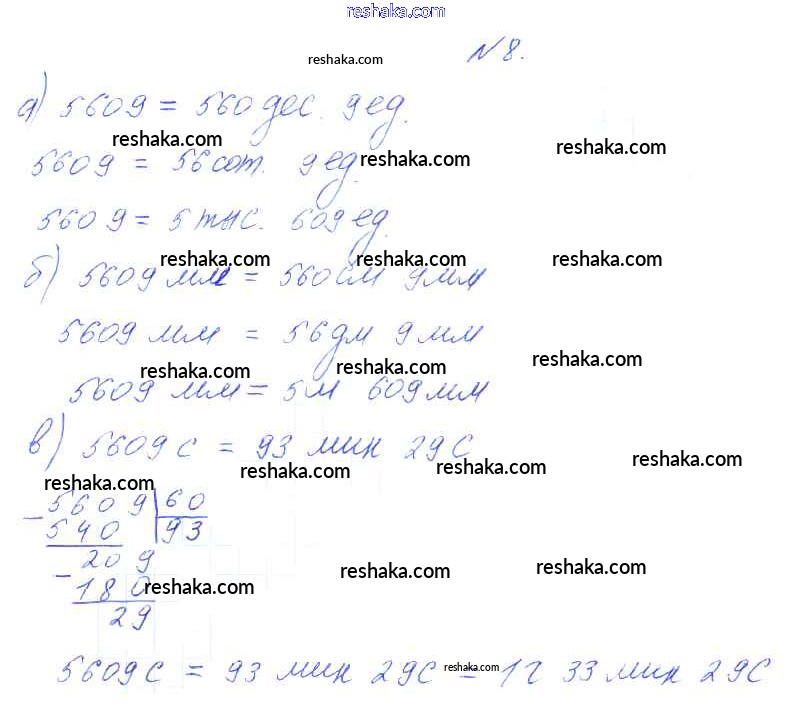 reshaka.com
№8.
reshaka.com
а) 5609 = 560 дес. 9 ед.
reshaka.com reshaka.com
5609 = 56 сот. 9 ед. reshaka.com
5609 = 5 тыс. 609 ед.
reshaka.com reshaka.com reshaka.com
б) 5609 мм = 560 см 9 мм
5609 мм = 56 дм 9 мм
reshaka.com reshaka.com reshaka.com
5609 мм = 5 м 609 мм
в) 5609 с = 93 мин 29 с
reshaka.com reshaka.com reshaka.com reshaka.com
- 5609 | 60
540 | 93
209
- 180 reshaka.com reshaka.com reshaka.com
29
5609 с = 93 мин 29 с = 1 г 33 мин 29 с
reshaka.com